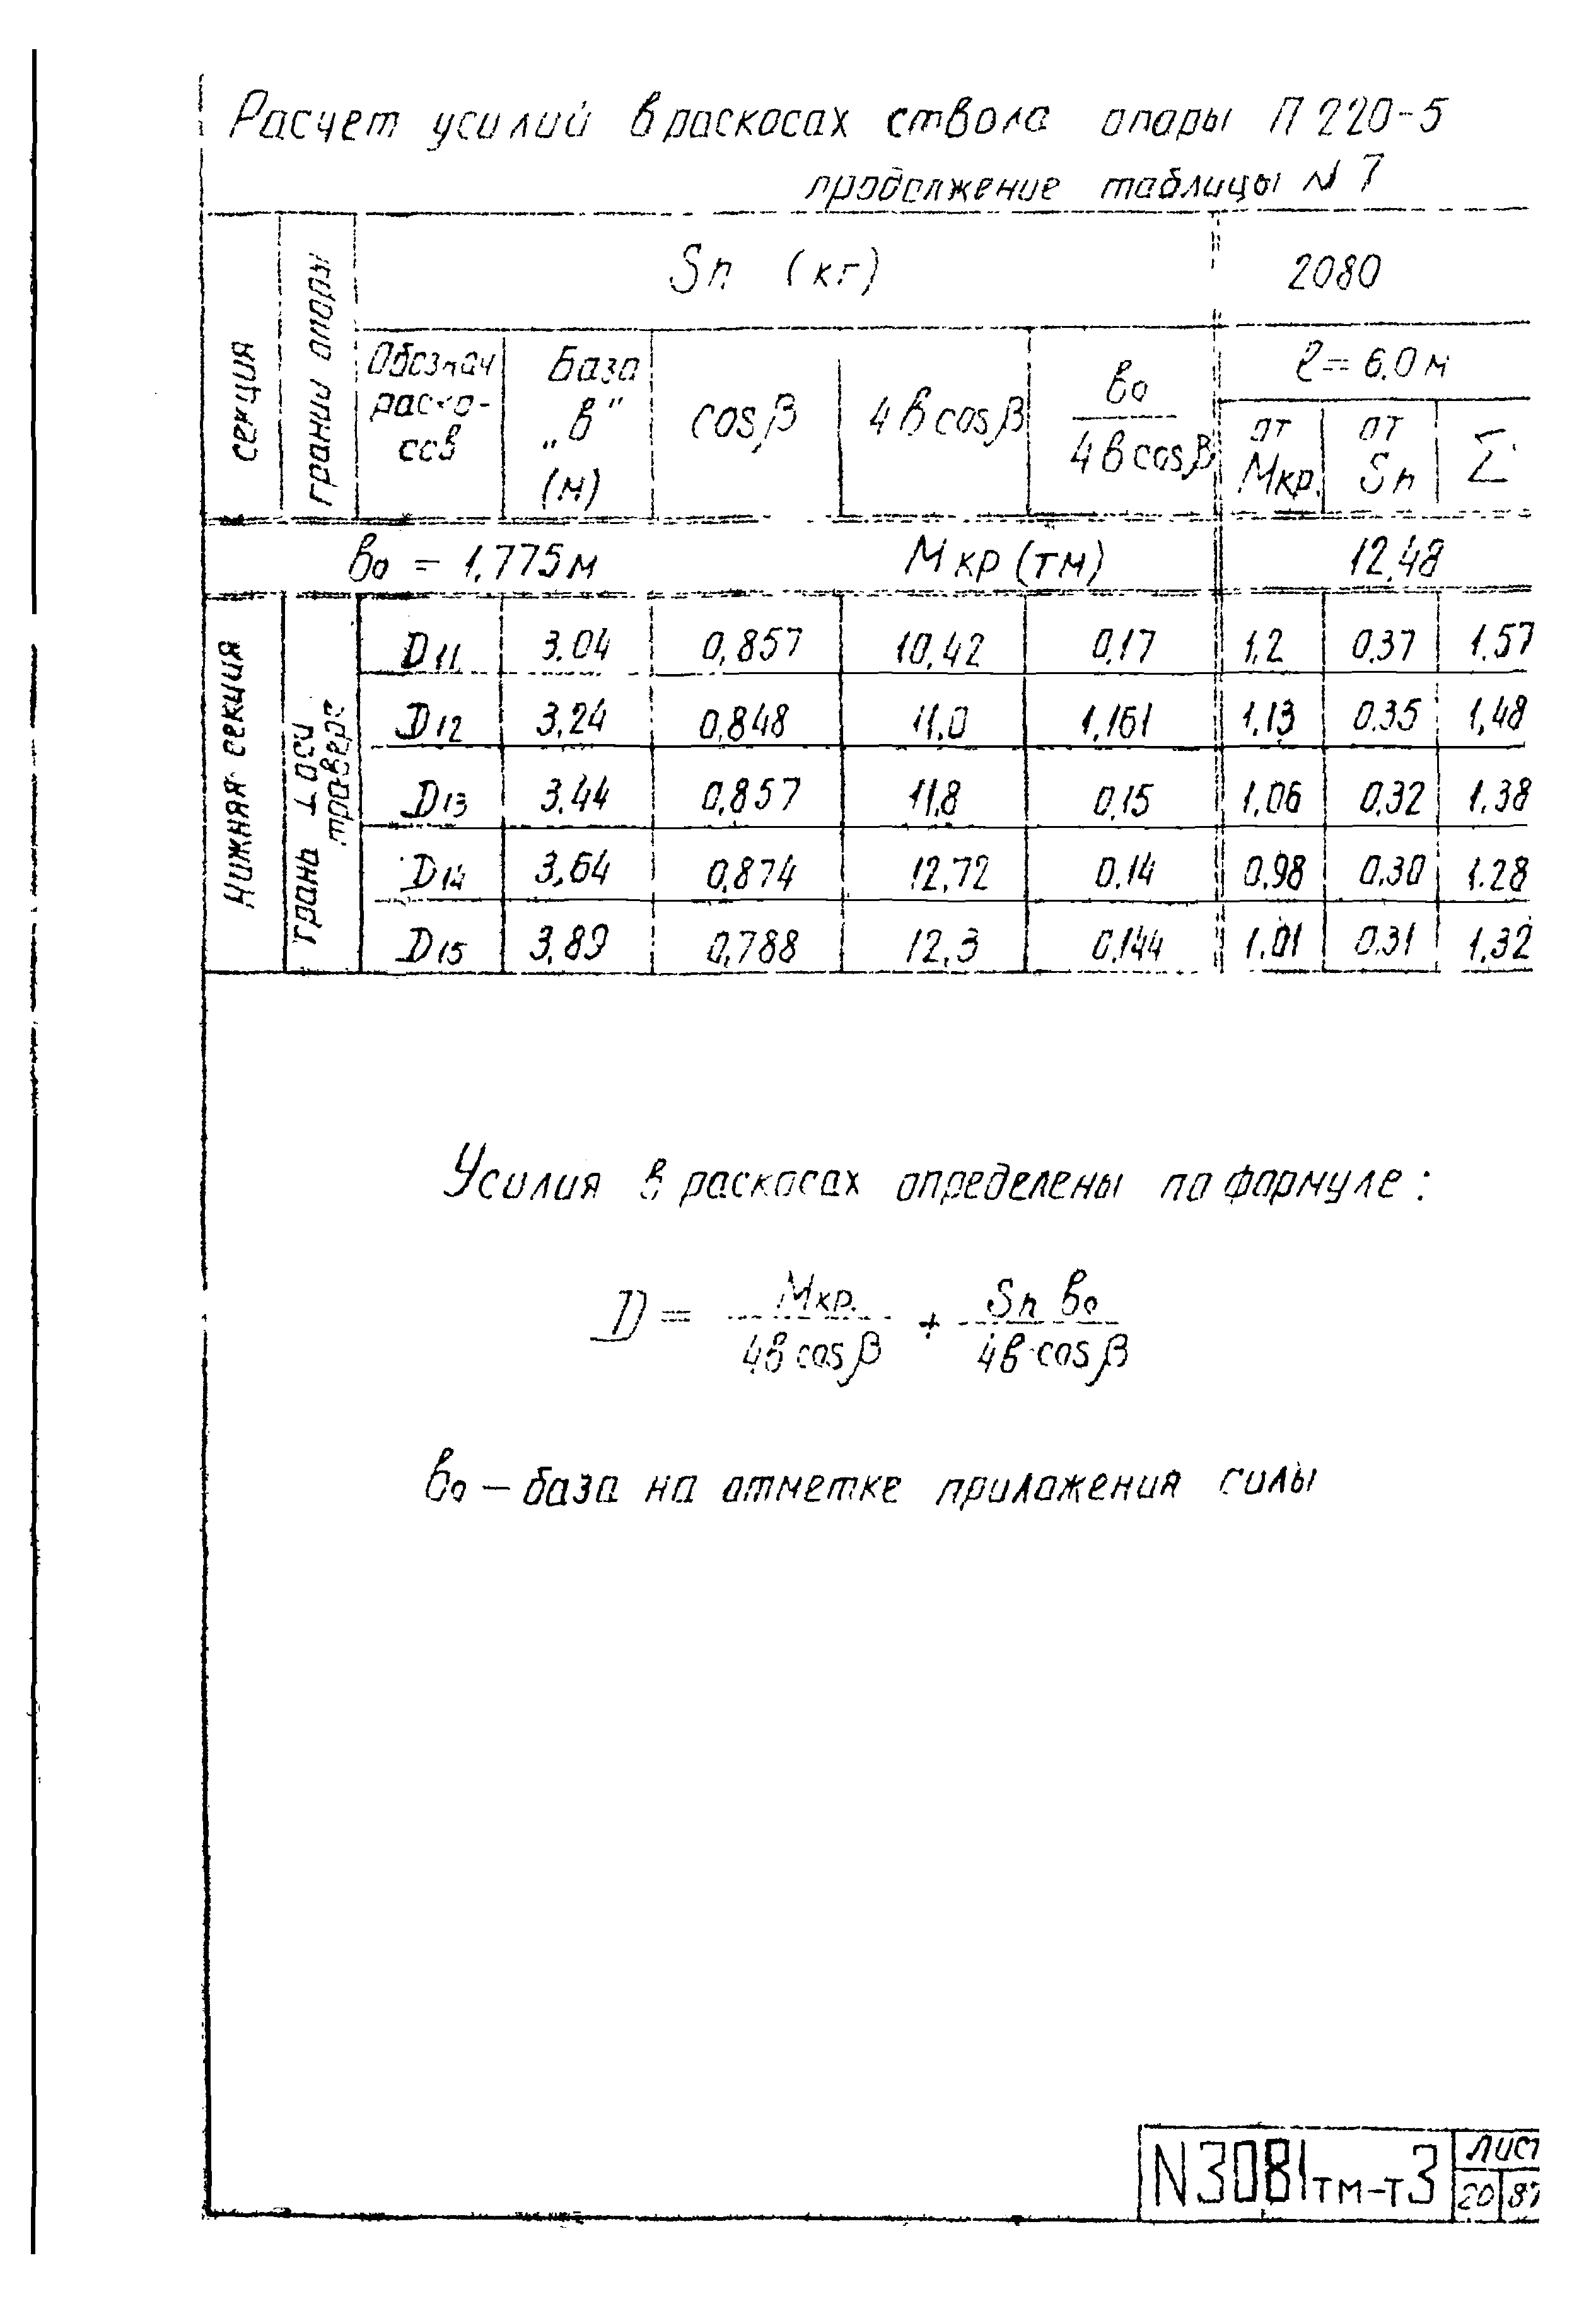 Расчет усилий в раскосах ствола опоры П 220-5
продолжение таблицы N 7
секция
грани опоры
Sп (кг)
2080
Обознач раско-сов
База „в" (м)
cosβ
4в cosβ
в₀ / 4в cosβ
ℓ = 6.0 м
от Мкр.
от Sп
Σ
в₀ = 1.775 м Мкр (тм) 12.48
Нижняя секция
Грань ⊥ оси траверс
D11 3.04 0,857 10.42 0.17 1.2 0.37 1.57
D12 3.24 0,848 11.0 1.161 1.13 0.35 1,48
D13 3.44 0.857 11.8 0.15 1.06 0.32 1.38
D14 3.64 0.874 12.72 0.14 0.98 0.30 1.28
D15 3.89 0.788 12.3 0.144 1.01 0.31 1.32
Усилия в раскосах определены по формуле:
D = Мкр. / 4в cosβ + Sп в₀ / 4в·cosβ
в₀ – база на отметке приложения силы
N3081тм-т3
лист
20